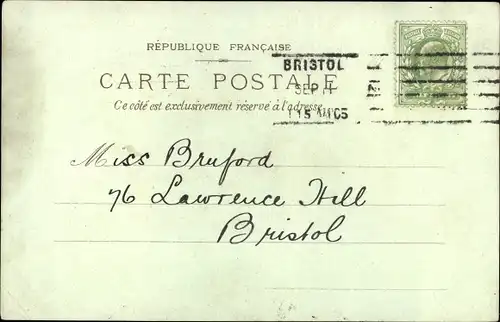 RÉPUBLIQUE FRANÇAISE
CARTE POSTALE
Ce côté est exclusivement réservé à l'adresse
BRISTOL
SEP 11
15 AM 05
Miss Bruford
76 Lawrence Hill
Bristol